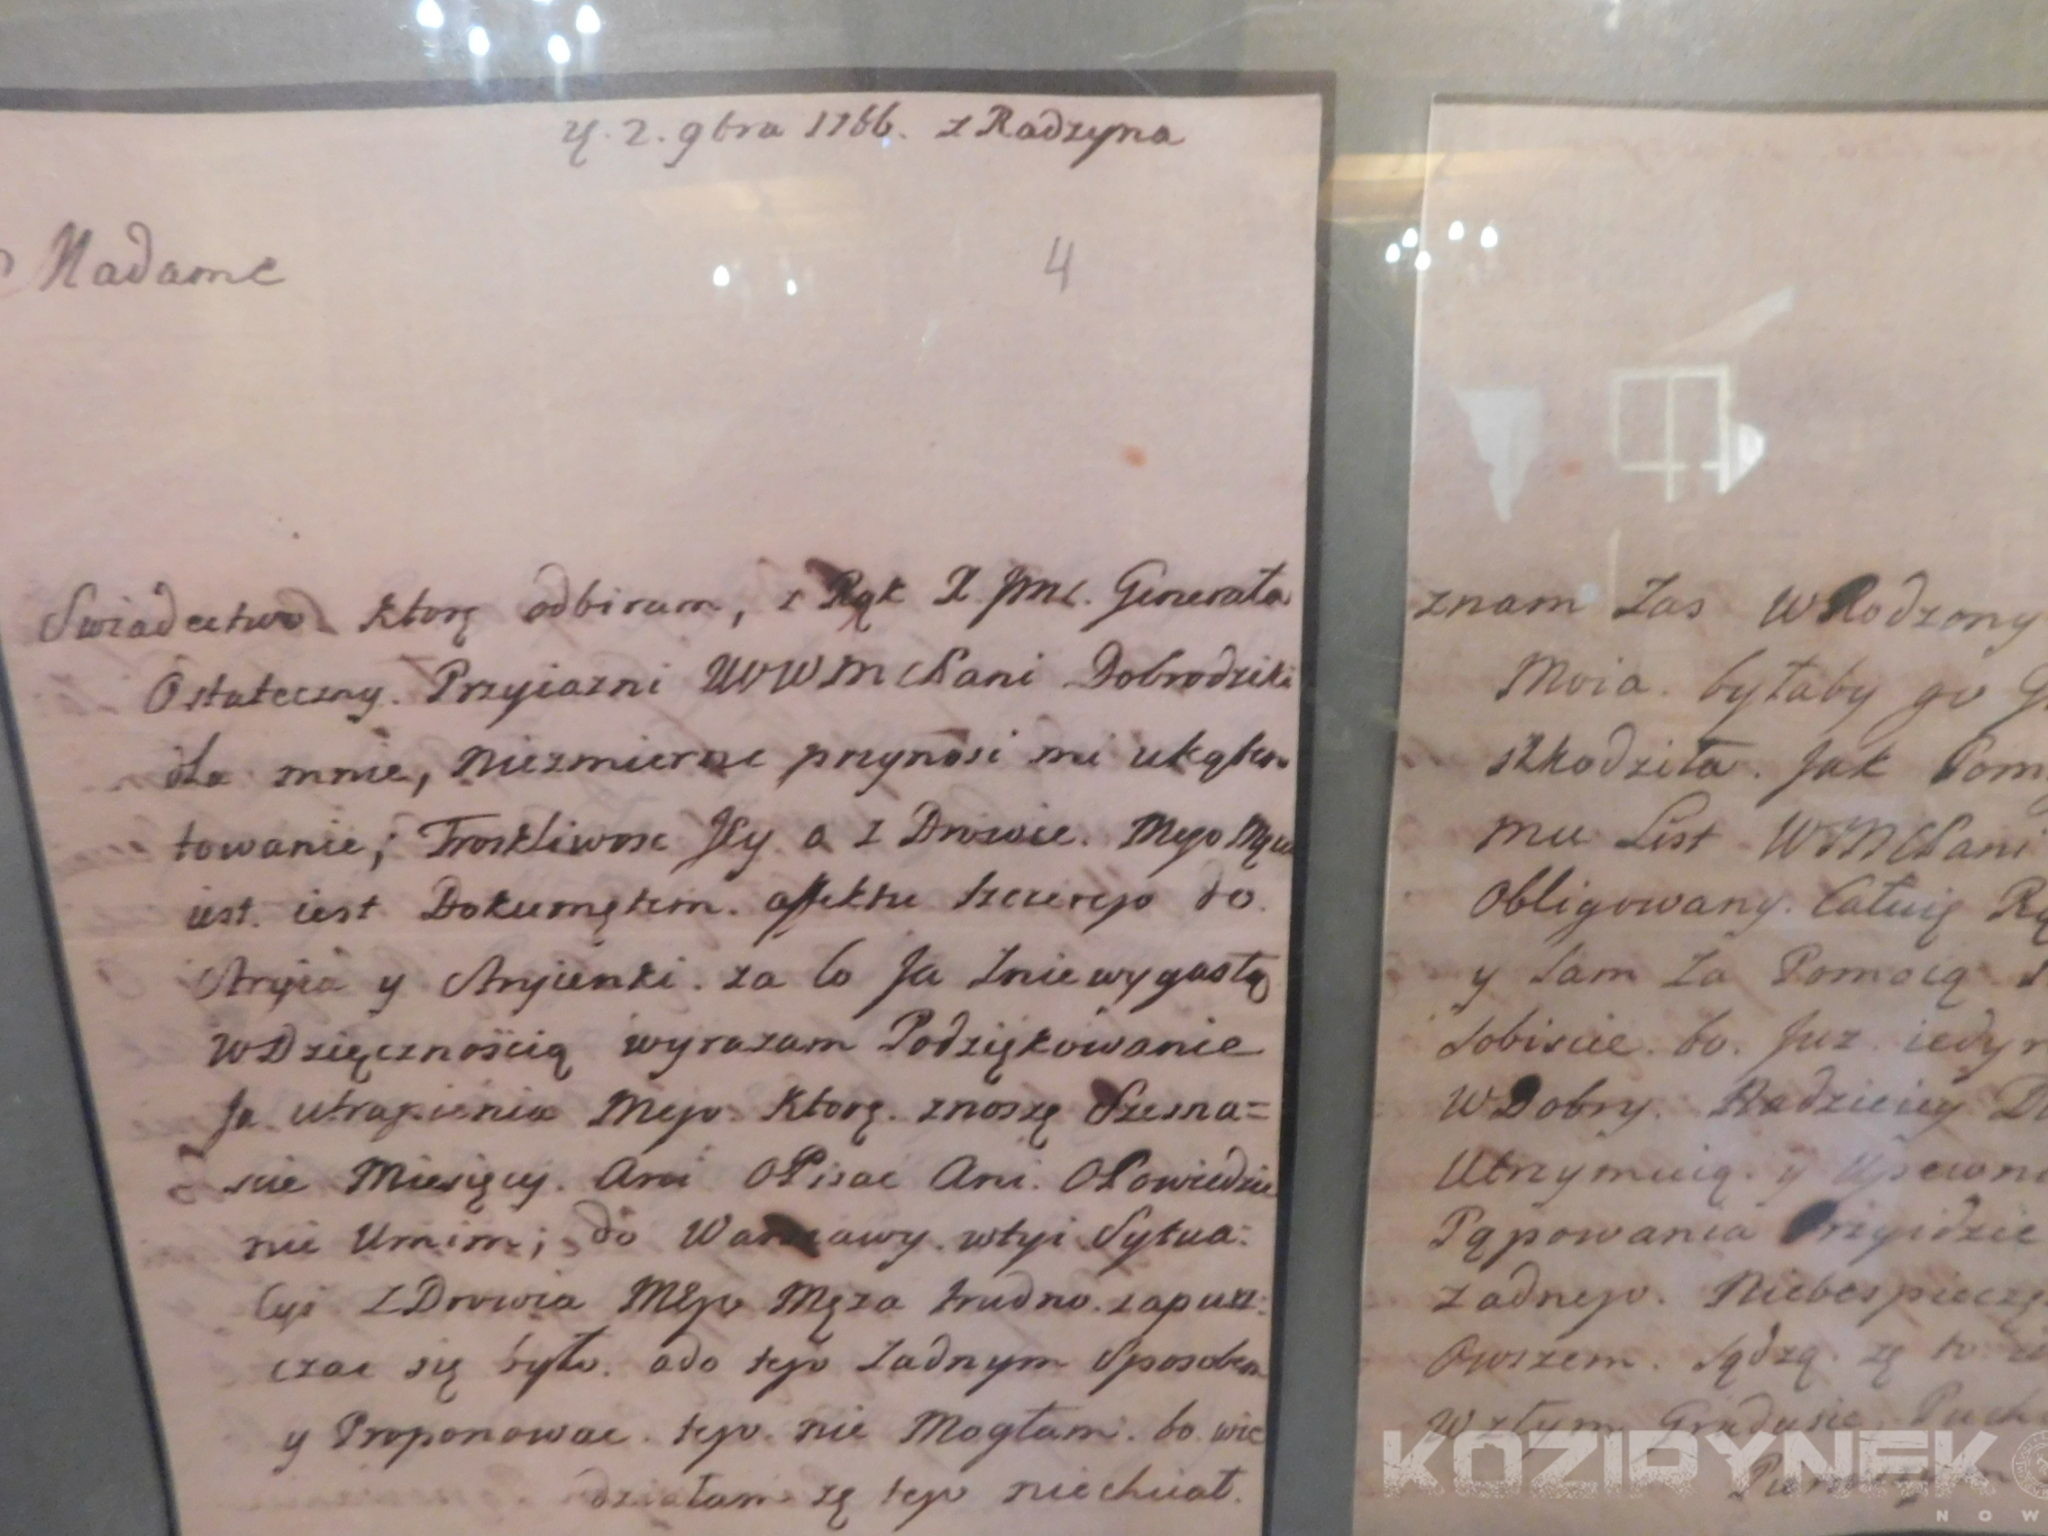 d. 2. 9bra 1766. z Radzyna
Madame
4
Swiadectwo ktorę odbiram, z Rąk X. Jmc. Generała
Ostateczny. Przyiazni WWMCPani Dobrodziki
dla mnie, niezmierne przynosi mi ukąten
towanie; Troskliwosc Jey a z Drowie. Mego Męża
iest. iest Dokumętem. affektu szczerego do.
Stryia y Stryienki. za co Ja z niewygasłą
WDzięcznością wyrazam Podziękowanie
Ja utrapienia Mego. ktorę. znoszę Szesna=
scie Miesięcy. Ani OPisac Ani. OPowiedzic
nie Umim; do Warszawy. wtyi Sytua:
cyi ZDrowia Mego Męza trudno. zapusz:
czac się było. ado tego zadnym Sposobem
y Proponowac. tego. nie Mogłam. bo. wie
działam zę tego niechciał.
znam Zas WRodzony
Moia. byłaby go
szkodziła. Jak Pom
mu List WMCPani
Obligowany. Całuię
y sam za Pomocą
sobiscie. bo. Juz iedyn
WDobry. Radzieciey
Utrzymuią. y Upewn
Pąpowania Przyidzie
zadnego. Niebespieczę
Owszem. sądzą. zę to
Wzłym Gradusie. Puch
KOZIRYNEK
NOW